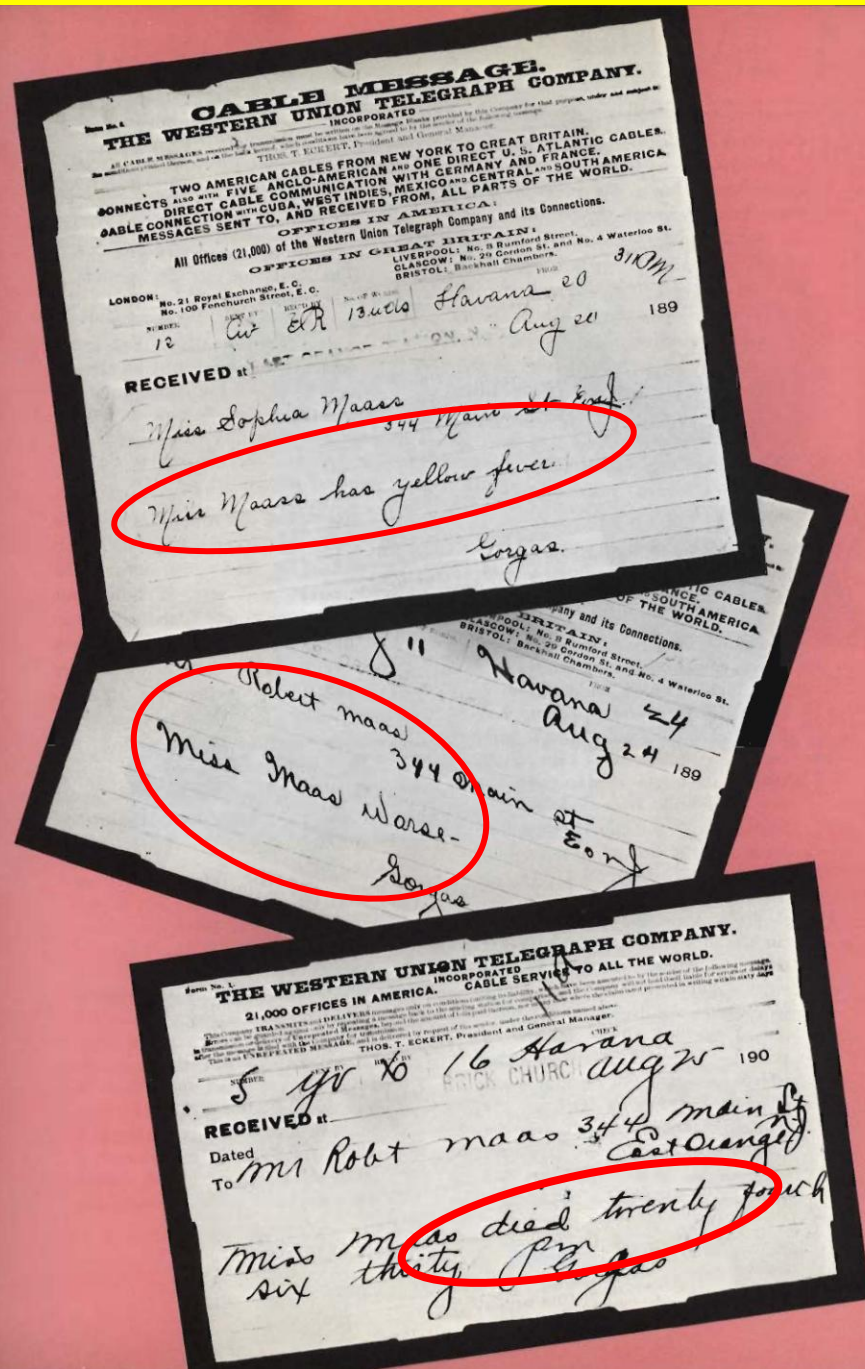 Form No. 1.
CABLE MESSAGE.
THE WESTERN UNION TELEGRAPH COMPANY.
INCORPORATED
ALL CABLE MESSAGES received for transmission must be written on the Message Blanks provided by this Company for that purpose, under and subject to
THOS. T. ECKERT, President and General Manager.
TWO AMERICAN CABLES FROM NEW YORK TO GREAT BRITAIN.
CONNECTS ALSO WITH FIVE ANGLO-AMERICAN AND ONE DIRECT U. S. ATLANTIC CABLES.
DIRECT CABLE COMMUNICATION WITH GERMANY AND FRANCE.
CABLE CONNECTION WITH CUBA, WEST INDIES, MEXICO AND CENTRAL AND SOUTH AMERICA.
MESSAGES SENT TO, AND RECEIVED FROM, ALL PARTS OF THE WORLD.
OFFICES IN AMERICA:
All Offices (21,000) of the Western Union Telegraph Company and its Connections.
OFFICES IN GREAT BRITAIN:
LONDON: No. 21 Royal Exchange, E. C.
No. 109 Fenchurch Street, E. C.
LIVERPOOL: No. 8 Rumford Street.
GLASCOW: No. 29 Gordon St. and No. 4 Waterloo St.
BRISTOL: Backhall Chambers.
NUMBER SENT BY REC'D BY No. OF WORDS FROM
12 13 wds Havana 20
Aug 20 189
RECEIVED at
Miss Sophia Maass
344 Main St
Miss Maass has yellow fever.
Gorgas.
TIC CABLES.
NCE.
SOUTH AMERICA
OF THE WORLD.
pany and its Connections.
BRITAIN:
POOL: No. 8 Rumford Street.
GLASCOW: No. 29 Gordon St. and No. 4 Waterloo St.
BRISTOL: Backhall Chambers.
FROM
11 Havana 24
Aug 24 189
Robert Maas
344 Main St
Miss Maas Worse-
Gorgas
Form No. 1.
THE WESTERN UNION TELEGRAPH COMPANY.
INCORPORATED
21,000 OFFICES IN AMERICA. CABLE SERVICE TO ALL THE WORLD.
THOS. T. ECKERT, President and General Manager.
NUMBER SENT BY REC'D BY CHECK
5 16 Havana
BRICK CHURCH Aug 25 190
RECEIVED at
Dated
To Mr Robt Maas 344 Main St
East Orange NJ
Miss Maas died twenty fourth
six thirty pm Gorgas